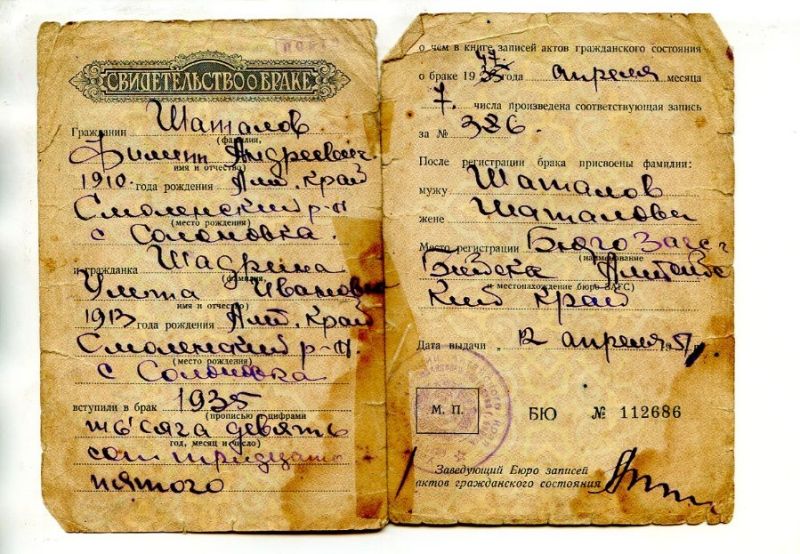 СВИДЕТЕЛЬСТВО О БРАКЕ
Гражданин Шаталов
(фамилия,
Филипп Андреевич
имя и отчество)
1910 года рождения Алт. Край
Смоленский р-н
(место рождения)
с Солоновка.
и гражданка Шадрина
(фамилия,
Улита Иванов
имя и отчество)
1913 года рождения Алт. Край
Смоленский р-н.
(место рождения)
с Солоновка
вступили в брак 1935
(прописью и цифрами
тысяча девять
год, месяц и число)
сот тридцать
пятого
о чем в книге записей актов гражданского состояния
о браке 19 года апреля месяца
7. числа произведена соответствующая запись
за № 326.
После регистрации брака присвоены фамилии:
мужу Шаталов
жене Шаталова
Место регистрации Бюро Загс г
(наименование
Бийска Алтайс
и местонахождение бюро ЗАГС)
кий край
Дата выдачи „12 апреля 1951.
М. П.
БЮ № 112686
Заведующий Бюро записей
актов гражданского состояния